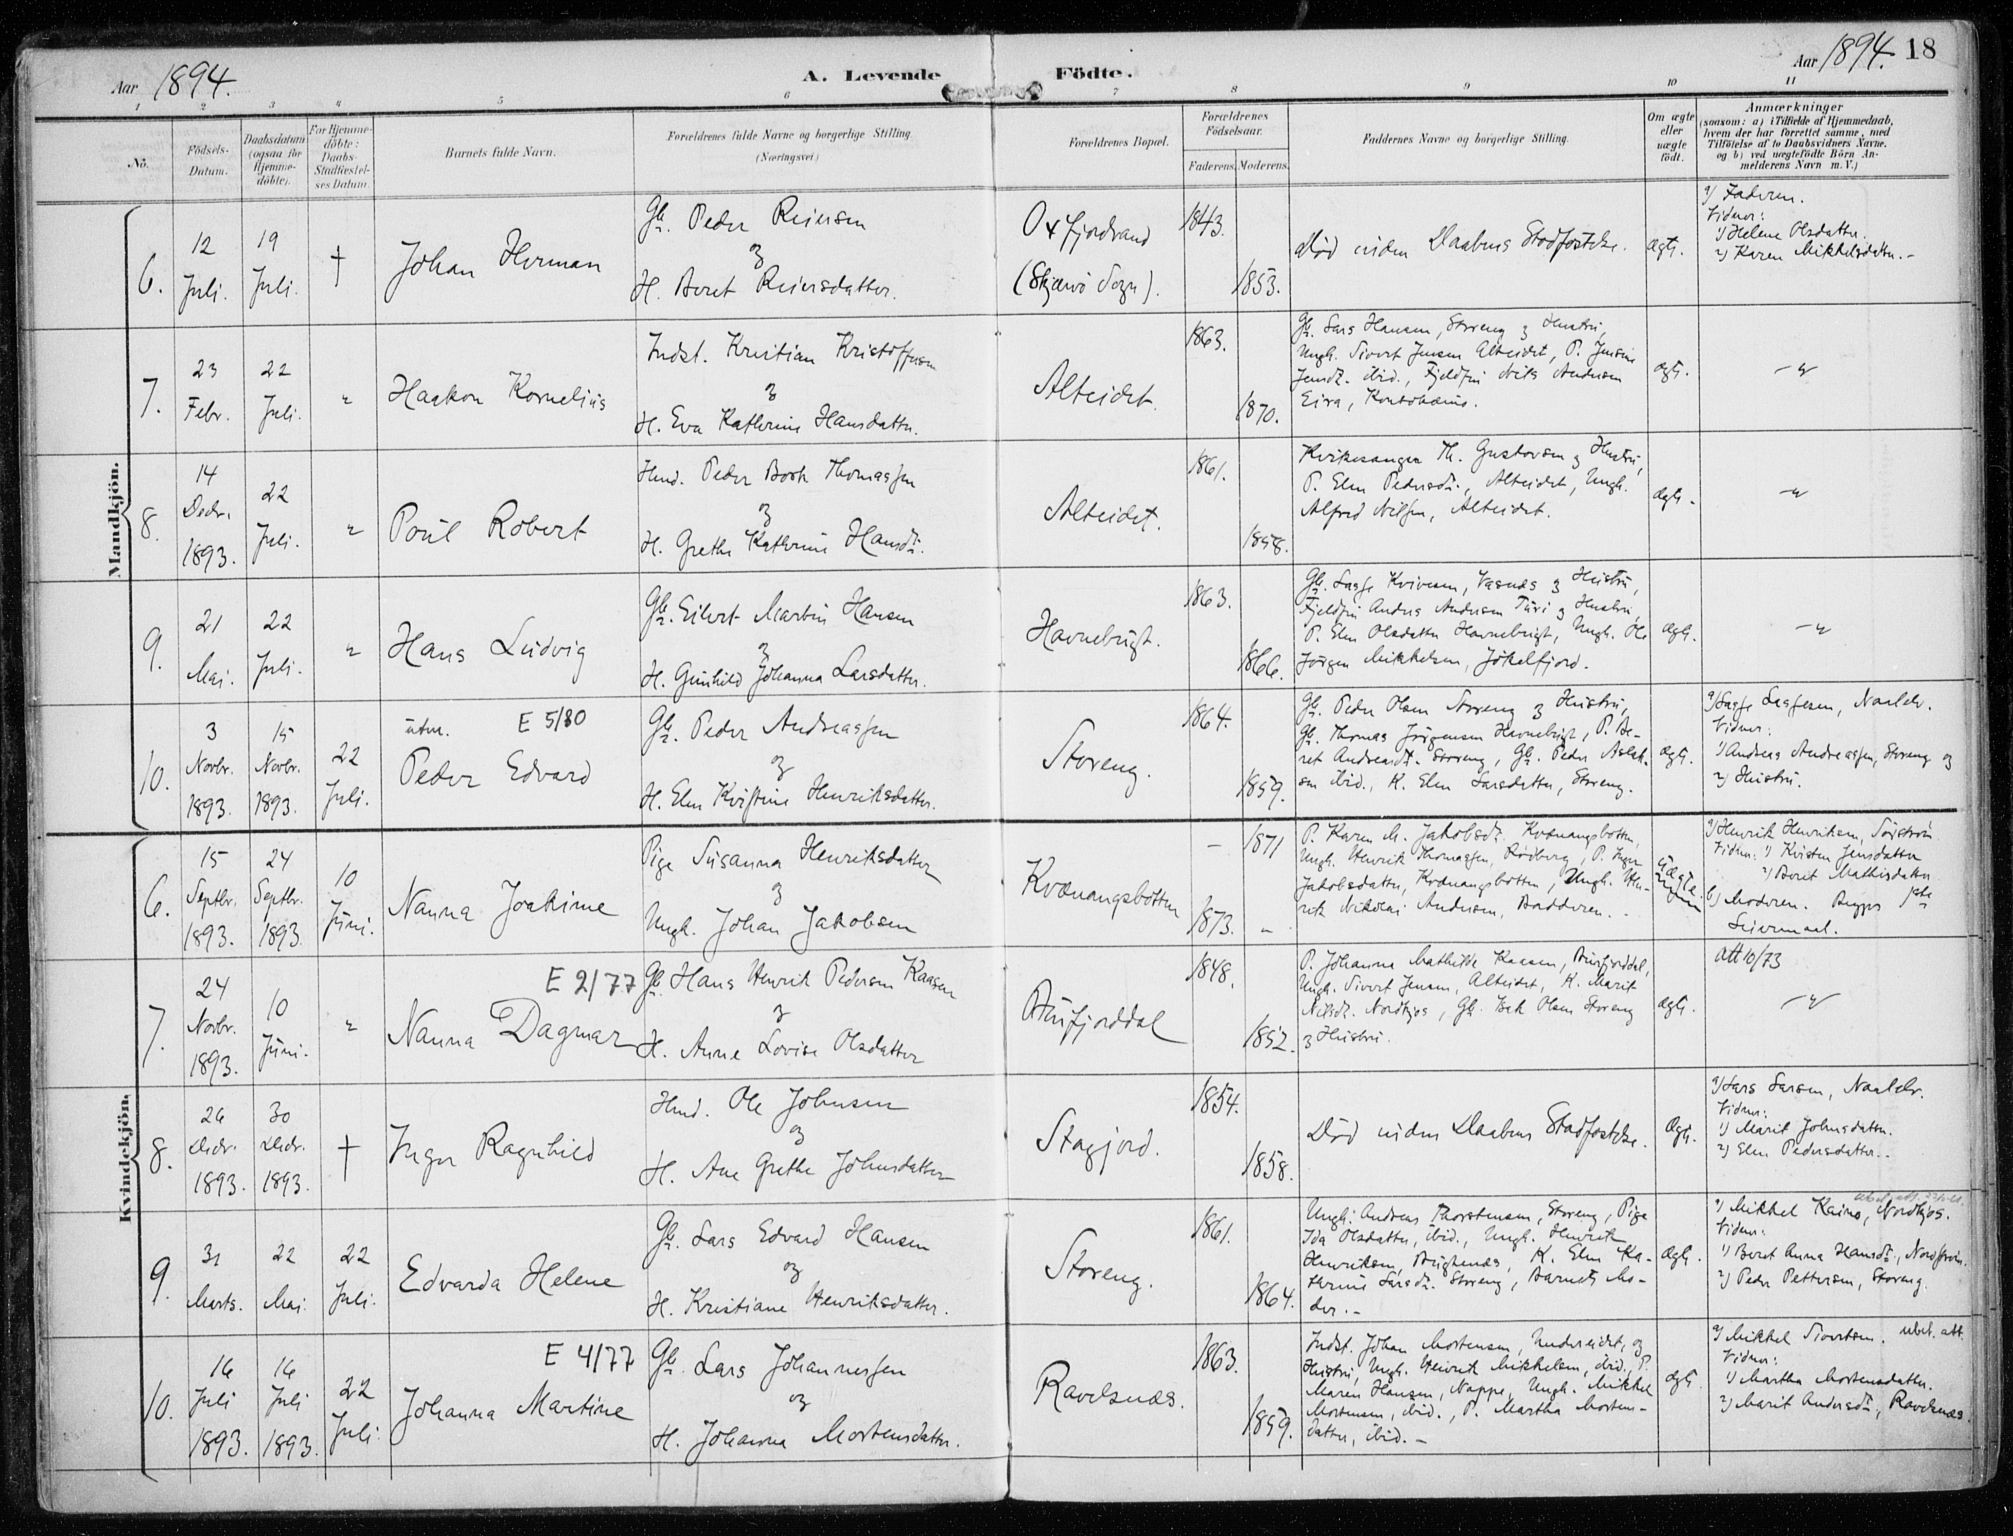 Aar 1894.
A. Levende Födte.
Aar 1894. 18
1 2 3 4 5 6 7 8 9 10 11
No.
Födsels-
Datum.
Daabsdatum
(ogsaa for
Hjemme-
döbte).
For Hjemme-
döbte:
Daabs-
Stadfæstel-
ses Datum
Barnets fulde Navn.
Forældrenes fulde Navne og borgerlige Stilling.
(Næringsvei)
Forældrenes Bopæl.
Forældrenes
Födselsaar.
Faderens. Moderens.
Faddernes Navne og borgerlige Stilling.
Om ægte
eller
uægte
födt.
Anmærkninger
(saasom: a) i Tilfælde af Hjemmedaab,
hvem der har forrettet samme, med
Tilföielse af to Daabsvidners Navne,
og b) ved uægtefödte Börn An-
melderens Navn m. V.)
Mandkjön.
6.
12
Juli.
19
Juli.
†
Johan Herman
Gb. Peder Reiersen
og
H. Beret Reiersdatter.
Oxfjordvand
(Skjærvö Sogn).
1843.
1853.
Död inden Daabens Stadfæstelse.
ægte.
a) Faderen.
Vidner:
1) Helene Olsdatter.
2) Karen Mikkelsdatter.
7.
23
Febr.
22
Juli.
"
Haakon Kornelius
Indst. Kristian Kristoffersen
og
H. Eva Kathrine Hansdatter.
Alteidet.
1863.
1870.
Gb. Lars Hansen, Storeng og Hustru,
Ungk. Sivert Jensen Alteidet, P. Jensine
Jensdt. ibid., Fjeldfin Nils Andersen
Eira, Koutokeino.
ægte.
"
8.
14
Decbr.
1893.
22
Juli.
"
Poul Robert
Hmd. Peder Bock Thomassen
og
H. Grethe Kathrine Hansdt.
Alteidet.
1861.
1858.
Kirkesanger Th. Gustavsen og Hustru,
P. Elen Pedersdt., Alteidet, Ungk.
Alfred Nilsen, Alteidet.
ægte.
"
9.
21
Mai.
22
Juli.
"
Hans Ludvig
Gb. Eilert Martin Hansen
og
H. Gunhild Johanna Larsdatter.
Havnebugt.
1863.
1866.
Fjeldfin Anders Andersen Turi og Hustru,
P. Elen Olsdatter Havnebugt, Ungk. Ole
Jörgen Mikkelsen, Jökelfjord.
ægte.
"
10.
3
Novbr.
1893.
15
Novbr.
1893.
22
Juli.
utm. E 5/80
Peder Edvard
Gb. Peder Andreassen
og
H. Elen Kristine Henriksdatter.
Storeng.
1864.
1859.
Gb. Peder Olsen Storeng og Hustru,
Gb. Thomas Jörgensen Havnebugt, P. Be-
ret Andreasdt. Storeng, Gb. Peder Aslak-
sen ibid., K. Elen Larsdatter, Storeng.
ægte.
Vidner:
1) Andreas Andreassen, Storeng og
2) Hustru.
Kvindekjön.
6.
15
Septbr.
1893.
24
Septbr.
1893.
10
Juni.
Nanna Joakime
Pige Susanna Henriksdatter
og
Ungk. Johan Jakobsen
Kvænangsbotten
- 1871
1873. -
P. Karen M. Jakobsdt. Kvænangsbotten,
Ungk. Henrik Thomassen, Rödberg, P. Inger
Jakobsdatter, Kvænangsbotten, Ungk. Hen-
rik Nikolai Andersen, Badderen.
uægte
a) Henrik Henriksen, Sörström
Vidner: 1) Kirsten Jensdatter
2) Berit Mathisdatter
b) Moderen. Begges 1ste
Leiermaal.
7.
24
Novbr.
1893.
10
Juni.
"
E 2/77
Nanna Dagmar
Gb. Hans Henrik Pedersen Kaasen
og
H. Anne Lovise Olsdatter
Burfjorddal
1848.
1852.
P. Johanna Mathilde Kaasen, Burfjorddal,
Ungk. Sivert Jensen, Alteidet, K. Marit
Nilsdt. Nordkjos, Gb. Olsen Storeng
og Hustru.
ægte.
att 10/73
"
8.
26
Decbr.
1893.
30
Decbr.
1893.
†
Inger Ragnhild
Hmd. Ole Johnsen
og
H. Ane Grethe Johnsdatter
Stajord.
1854.
1858.
Död inden Daabens Stadfæstelse.
ægte.
a) Lars Larsen, Naalelv.
Vidner:
1) Marit Johnsdatter.
2) Elen Pedersdatter.
9.
31
Marts.
22
Mai.
22
Juli.
Edvarda Helene
Gb. Lars Edvard Hansen
og
H. Kristiane Henriksdatter.
Storeng.
1861.
1864.
Ungk. Andreas Thorstensen, Storeng, Pige
Ida Olsdatter, ibid., Ungk. Henrik
Henriksen, K. Elen Ka-
tharine Larsdt. Storeng, Barnets Mo-
der.
ægte.
a) Mikkel Kaino, Nordkjos.
Vidner:
1) Beret Anna Hansdt.,
2) Peder Pettersen, Storeng.
10.
16
Juli
1893.
16
Juli
1893.
22
Juli.
E 4/77
Johanna Martine
Gb. Lars Johannessen
og
H. Johanna Mortensdatter.
Ravelsnæs.
1863.
1859.
Indst. Johan Mortensen, Undereidet, og
Hustru, Ungk. Henrik Mikkelsen, ibid., P.
Maren Hansen, Nappe, Ungk. Mikkel
Mortensen, ibid., P. Martha Mortens-
datter, ibid.
ægte.
a) Mikkel Sivertsen. utst. att.
Vidner:
1) Martha Mortensdatter.
2) Marit Andersdt., Ravelsnæs.